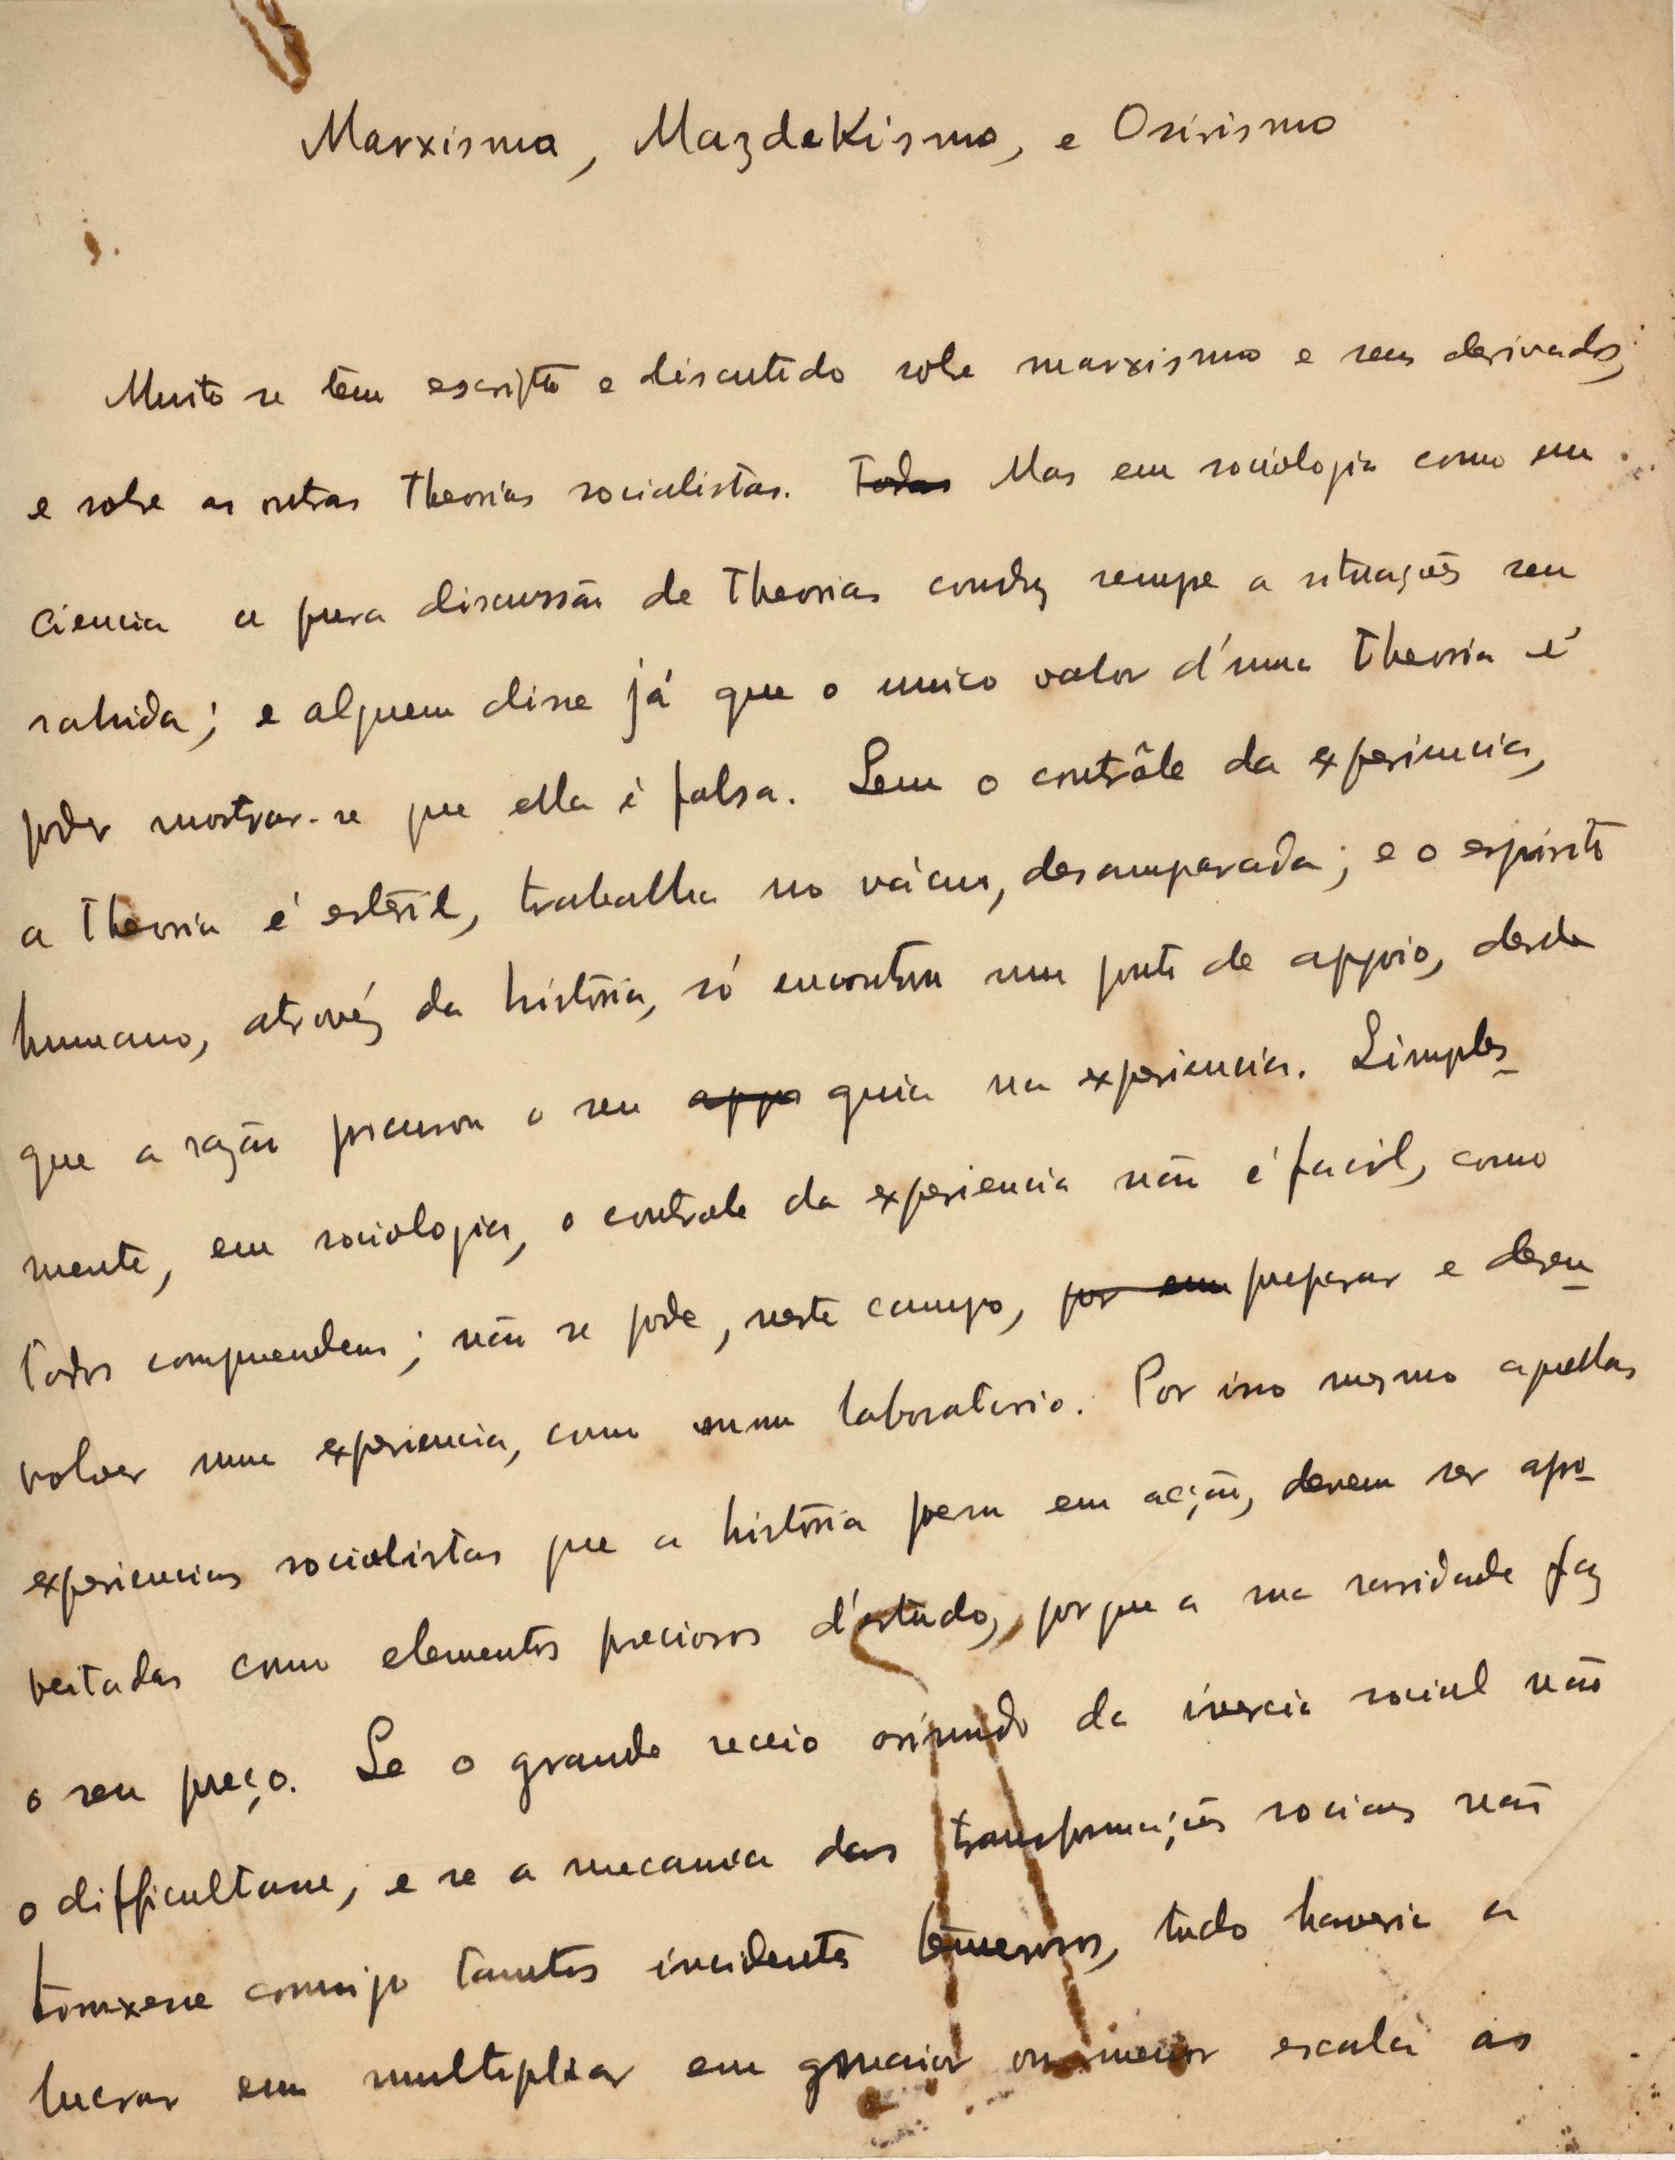 Marxismo, Mazdekismo, e Osirismo
Muito se tem escripto e discutido sobre marxismo e seus derivados,
e sobre as outras theorias socialistas. Todas Mas em sociologia como em
ciencia a pura discussão de theorias conduz sempre a situações sem
sahida; e alguem disse já que o unico valor d'uma theoria é
poder mostrar-se que ella é falsa. Sem o contrôle da experiencia,
a theoria é esteril, trabalha no vácuo, desamparada; e o espirito
humano, atravéz da história, só encontrou um ponto de appoio, desde
que a razão procurou o seu appo guia na experiencia. Simples-
mente, em sociologia, o controle da experiencia não é facil, como
todos comprehendem; não se pode, neste campo, por em preparar e desen-
volver uma experiencia, como num laboratorio. Por isso mesmo aquellas
experiencias socialistas que a história poem em acção, devem ser apro-
veitadas como elementos preciosos d'estudo, porque a sua raridade faz
o seu preço. Se o grande receio oriundo da inercia social não
o difficultasse, e se a mecanica das transformações sociaes não
trouxesse comsigo tantos incidentes temerosos, tudo haveria a
lucrar em multiplicar em maior ou menor escala as